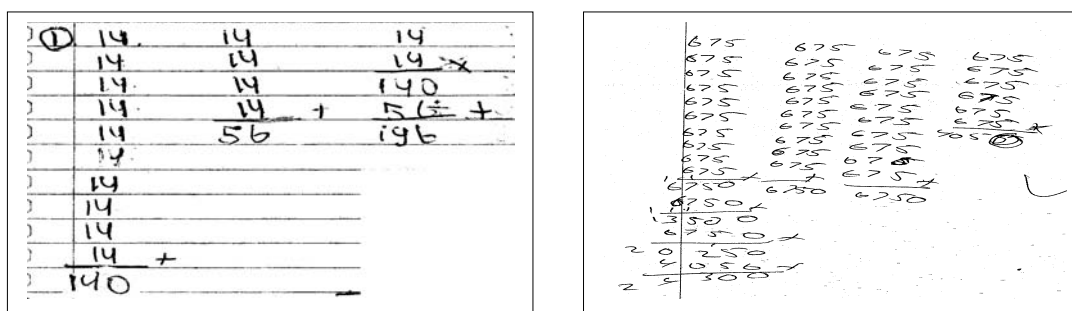 ① 14 14 14
14 14 14 x
14 14 140
14 14 + 56 +
14 56 196
14
14
14
14
14 +
140
675 675 675 675
675 675 675 675
675 675 675 675
675 675 675 675
675 675 675 675
675 675 675 675 +
675 675 675 4050
675 675 675
675 675 675
675 + 675 + 675 +
6750 6750 6750
6750 +
13500
6750 +
20250
4050 +
24300